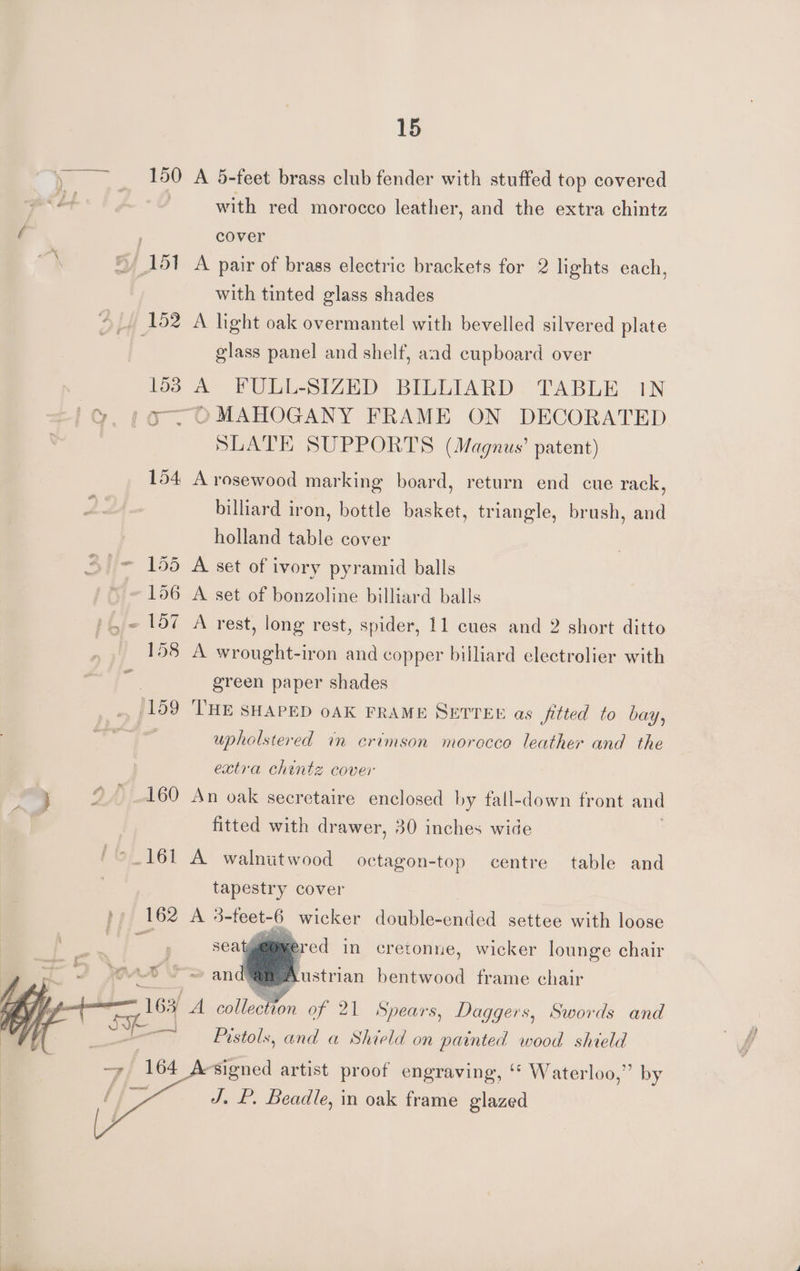 15
150 A 5-feet brass club fender with stuffed top covered
with red morocco leather, and the extra chintz
cover
151 A pair of brass electric brackets for 2 lights each,
with tinted glass shades
152 A light oak overmantel with bevelled silvered plate
glass panel and shelf, and cupboard over
153 A FULL-SIZED BILLIARD TABLE IN
MAHOGANY FRAME ON DECORATED
SLATE SUPPORTS (Magnus' patent)
154 A rosewood marking board, return end cue rack,
billiard iron, bottle basket, triangle, brush, and
holland table cover
155 A set of ivory pyramid balls
156 A set of bonzoline billiard balls
157 A rest, long rest, spider, 11 cues and 2 short ditto
158 A wrought-iron and copper billiard electrolier with
green paper shades
159 THE SHAPED OAK FRAME SETTEE as fitted to bay,
upholstered in crimson morocco leather and the
extra chintz cover
160 An oak secretaire enclosed by fall-down front and
fitted with drawer, 30 inches wide
161 A walnutwood octagon-top centre table and
tapestry cover
162 A 3-feet-6 wicker double-ended settee with loose
seat covered in cretonne, wicker lounge chair
and an Austrian bentwood frame chair
163 A collection of 21 Spears, Daggers, Swords and
Pistols, and a Shield on painted wood shield
164 A signed artist proof engraving, “Waterloo,” by
J. P. Beadle, in oak frame glazed